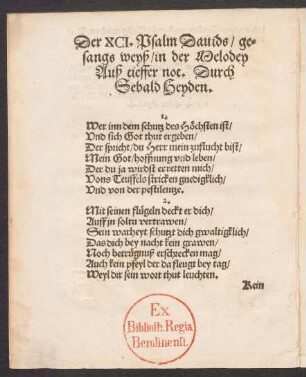 Der XCI. Psalm Dauids/ ge-
sangs weyß/ in der Melodey
Auß tieffer not. Durch
Sebald Heyden.
1.
Wer inn dem schutz des Höchsten ist/
Vnd sich Got thut ergeben/
Der spricht/ du Herr mein zuflucht bist/
Mein Got/ hoffnung vnd leben/
Der du ja wirdst erretten mich/
Vons Teuffels stricken gnedigklich/
Vnd von der pestilentze.
2.
Mit seinen flügeln deckt er dich/
Auff jn soltu vertrawen/
Sein warheyt schutzt dich gwaltigklich/
Das dich bey nacht kein grawen/
Noch betrügnuß erschrecken mag/
Auch kein pfeyl der da fleugt bey tag/
Weyl dir sein wort thut leuchten.
Kein
Ex
Biblioth. Regia
Berolinensi.